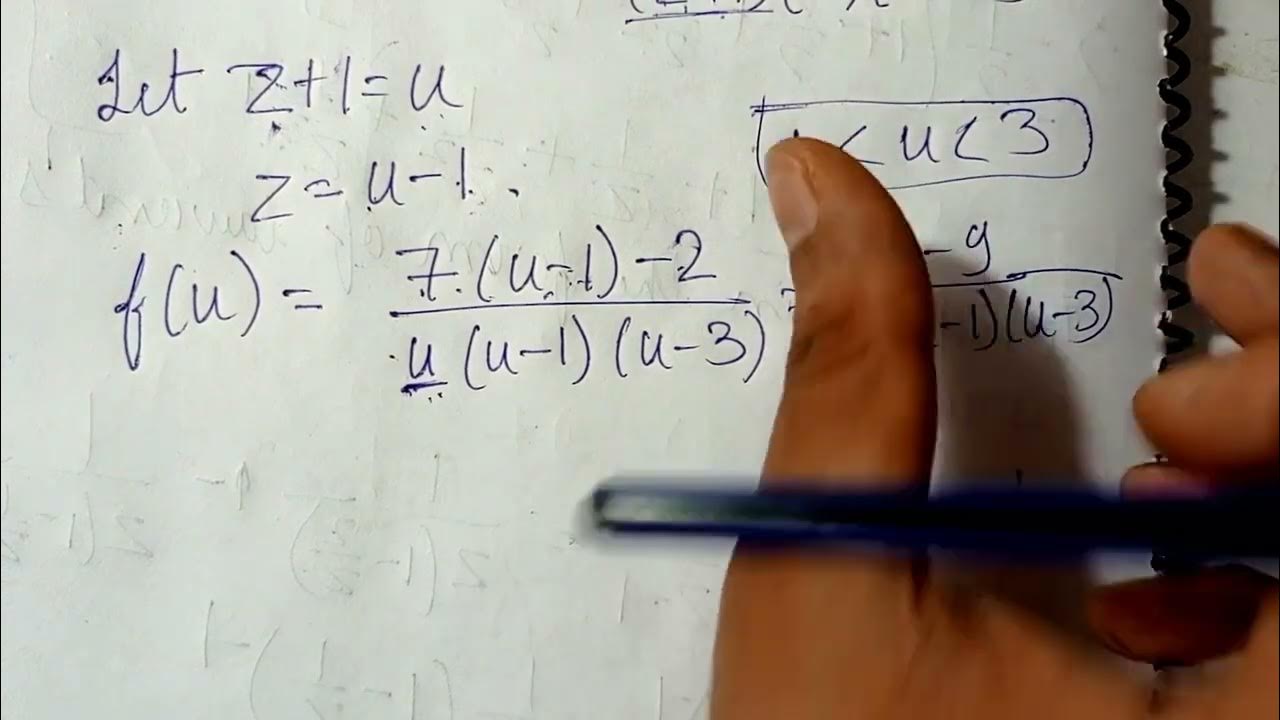 Let z+1=u
< u < 3
z = u-1.
f(u) = 7.(u-1)-2 / u(u-1)(u-3) = -9 / -1)(u-3)